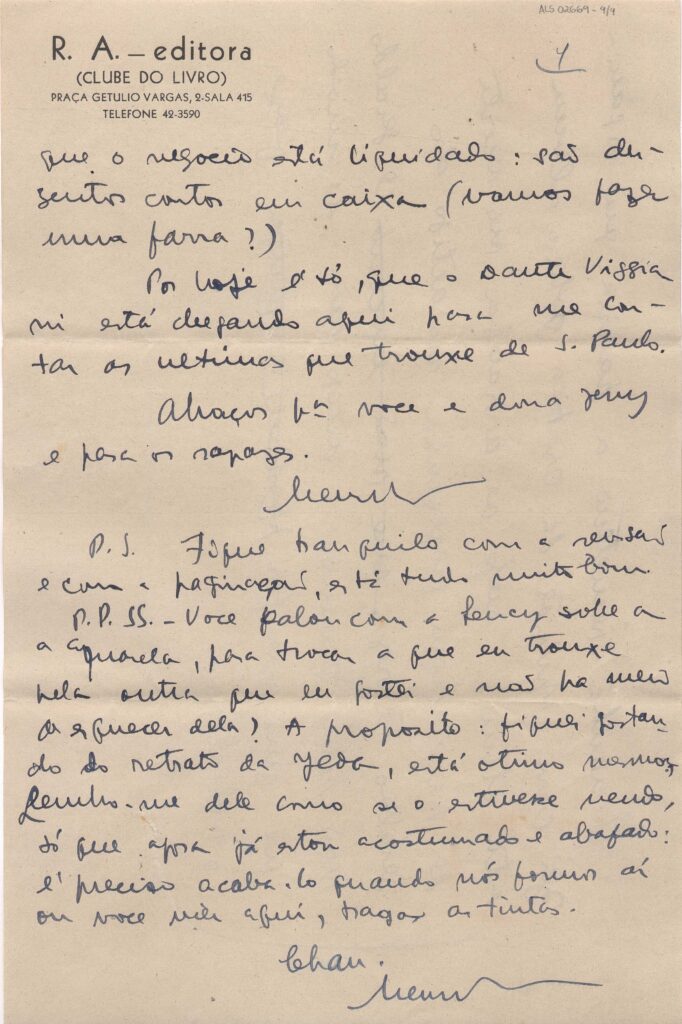 ALS 02669 - 9/9
R. A. — editora
(CLUBE DO LIVRO)
PRAÇA GETULIO VARGAS, 2-SALA 415
TELEFONE 42-3590
que o negocio está liquidado: são du-
zentos contos em caixa (vamos fazer
uma farra?)
Por hoje é só, que o Dante Viggia
ni está chegando aqui para me con-
tar as ultimas que trouxe de S. Paulo.
Abraços pª voce e dona
e para os rapazes.
P.S. Fique tranquilo com a revisão
e com a paginação, está tudo muito bom
P.P.SS. - Voce falou com a Lency sobre a
a aquarela, para trocar a que eu trouxe
pela outra que eu gostei e não ha meio
de esquecer dela? A proposito: fiquei gostan-
do do retrato da Yeda, está otimo mesmo,
Lembro-me dele como se o estivesse vendo,
só que agora já estou acostumado e abafado:
é preciso acaba-lo quando nós formos aí
ou voce vier aqui, traga as tintas.
Chau.